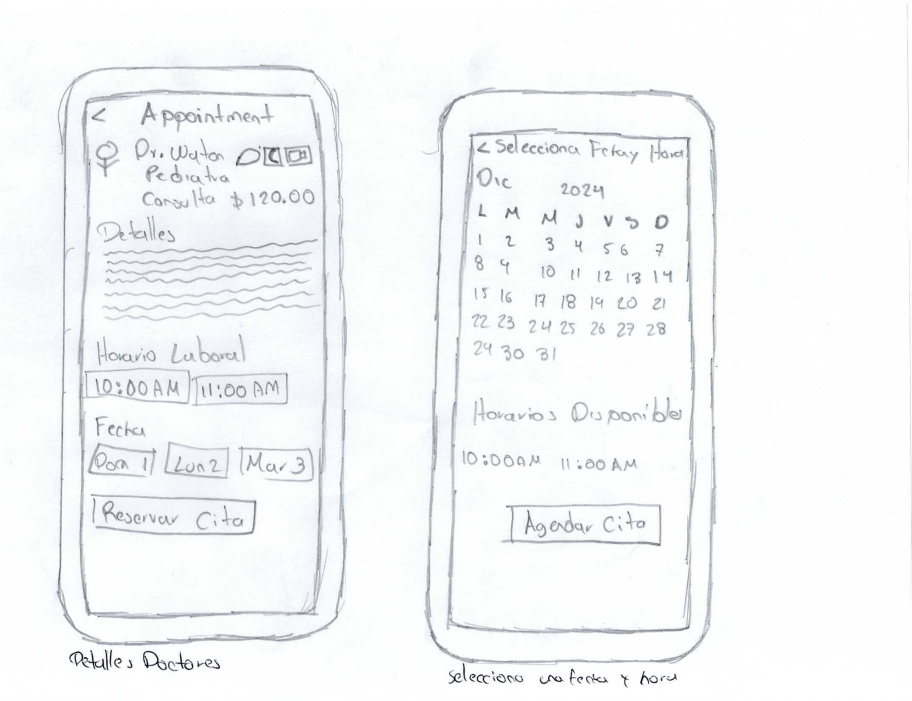 < Appointment
Dr. Waton
Pediatra
Consulta $120.00
Detalles
Horario Laboral
10:00AM 11:00 AM
Fecha
Dom 1 Lun 2 Mar 3
Reservar Cita
Detalles Doctores
< Selecciona Fehay Hora
Dic 2024
L M M J V S D
1 2 3 4 5 6 7
8 9 10 11 12 13 14
15 16 17 18 19 20 21
22 23 24 25 26 27 28
29 30 31
Horarios Disponibles
10:00AM 11:00 AM
Agendar Cita
Selecciona una fecha y hora